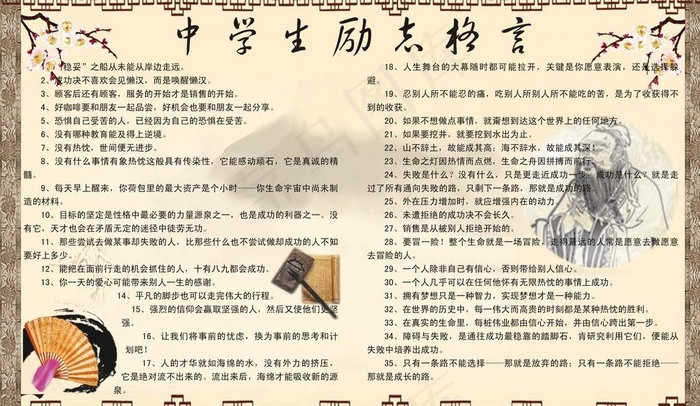 中学生励志格言
1、“稳妥”之船从未能从岸边走远。
2、成功决不喜欢会见懒汉，而是唤醒懒汉。
3、顾客后还有顾客，服务的开始才是销售的开始。
4、好咖啡要和朋友一起品尝，好机会也要和朋友一起分享。
5、恐惧自己受苦的人，已经因为自己的恐惧在受苦。
6、没有哪种教育能及得上逆境。
7、没有热忱，世间便无进步。
8、没有什么事情有象热忱这般具有传染性，它能感动顽石，它是真诚的精
髓。
9、每天早上醒来，你荷包里的最大资产是个小时──你生命宇宙中尚未制
造的材料。
10、目标的坚定是性格中最必要的力量源泉之一，也是成功的利器之一。没
有它，天才也会在矛盾无定的迷径中徒劳无功。
11、那些尝试去做某事却失败的人，比那些什么也不尝试做却成功的人不知
要好上多少。
12、能把在面前行走的机会抓住的人，十有八九都会成功。
13、你一天的爱心可能带来别人一生的感谢。
14、平凡的脚步也可以走完伟大的行程。
15、强烈的信仰会赢取坚强的人，然后又使他们更坚
强。
16、让我们将事前的忧虑，换为事前的思考和计
划吧！
17、人的才华就如海绵的水，没有外力的挤压，
它是绝对流不出来的。流出来后，海绵才能吸收新的源
泉。
18、人生舞台的大幕随时都可能拉开，关键是你愿意表演，还是选择躲
避。
19、忍别人所不能忍的痛，吃别人所别人所不能吃的苦，是为了收获得不
到的收获。
20、如果不想做点事情，就甭想到达这个世界上的任何地方。
21、如果要挖井，就要挖到水出为止。
22、山不辞土，故能成其高；海不辞水，故能成其深！
23、生命之灯因热情而点燃，生命之舟因拼搏而前行。
24、失败是什么？没有什么，只是更走近成功一步；成功是什么？就是走
过了所有通向失败的路，只剩下一条路，那就是成功的路。
25、外在压力增加时，就应增强内在的动力。
26、未遭拒绝的成功决不会长久。
27、销售是从被别人拒绝开始的。
28、要冒一险！整个生命就是一场冒险。走得最远的人常是愿意去做愿意
去冒险的人。
29、一个人除非自己有信心，否则带给别人信心。
30、一个人几乎可以在任何他怀有无限热忱的事情上成功。
31、拥有梦想只是一种智力，实现梦想才是一种能力。
32、在世界的历史中，每一伟大而高贵的时刻都是某种热忱的胜利。
33、在真实的生命里，每桩伟业都由信心开始，并由信心跨出第一步。
34、障碍与失败，是通往成功最稳靠的踏脚石，肯研究利用它们，便能从
失败中培养出成功。
35、只有一条路不能选择──那就是放弃的路；只有一条路不能拒绝──
那就是成长的路。